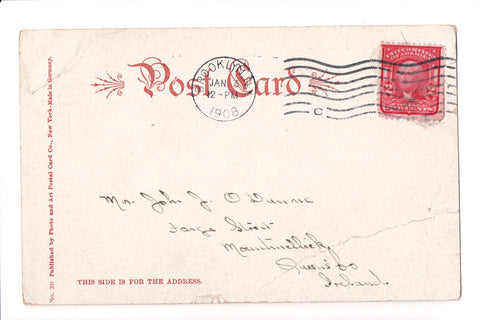 Post Card
BROOKLYN, N.Y.
JAN
12-PM
1908
C
UNITED STATES
2 2
No. 205 Published by Photo and Art Postal Card Co., New York-Made in Germany.
Mr. John J. O'Dunne
Street
Mountmellick
Queen's Co
Ireland
THIS SIDE IS FOR THE ADDRESS.